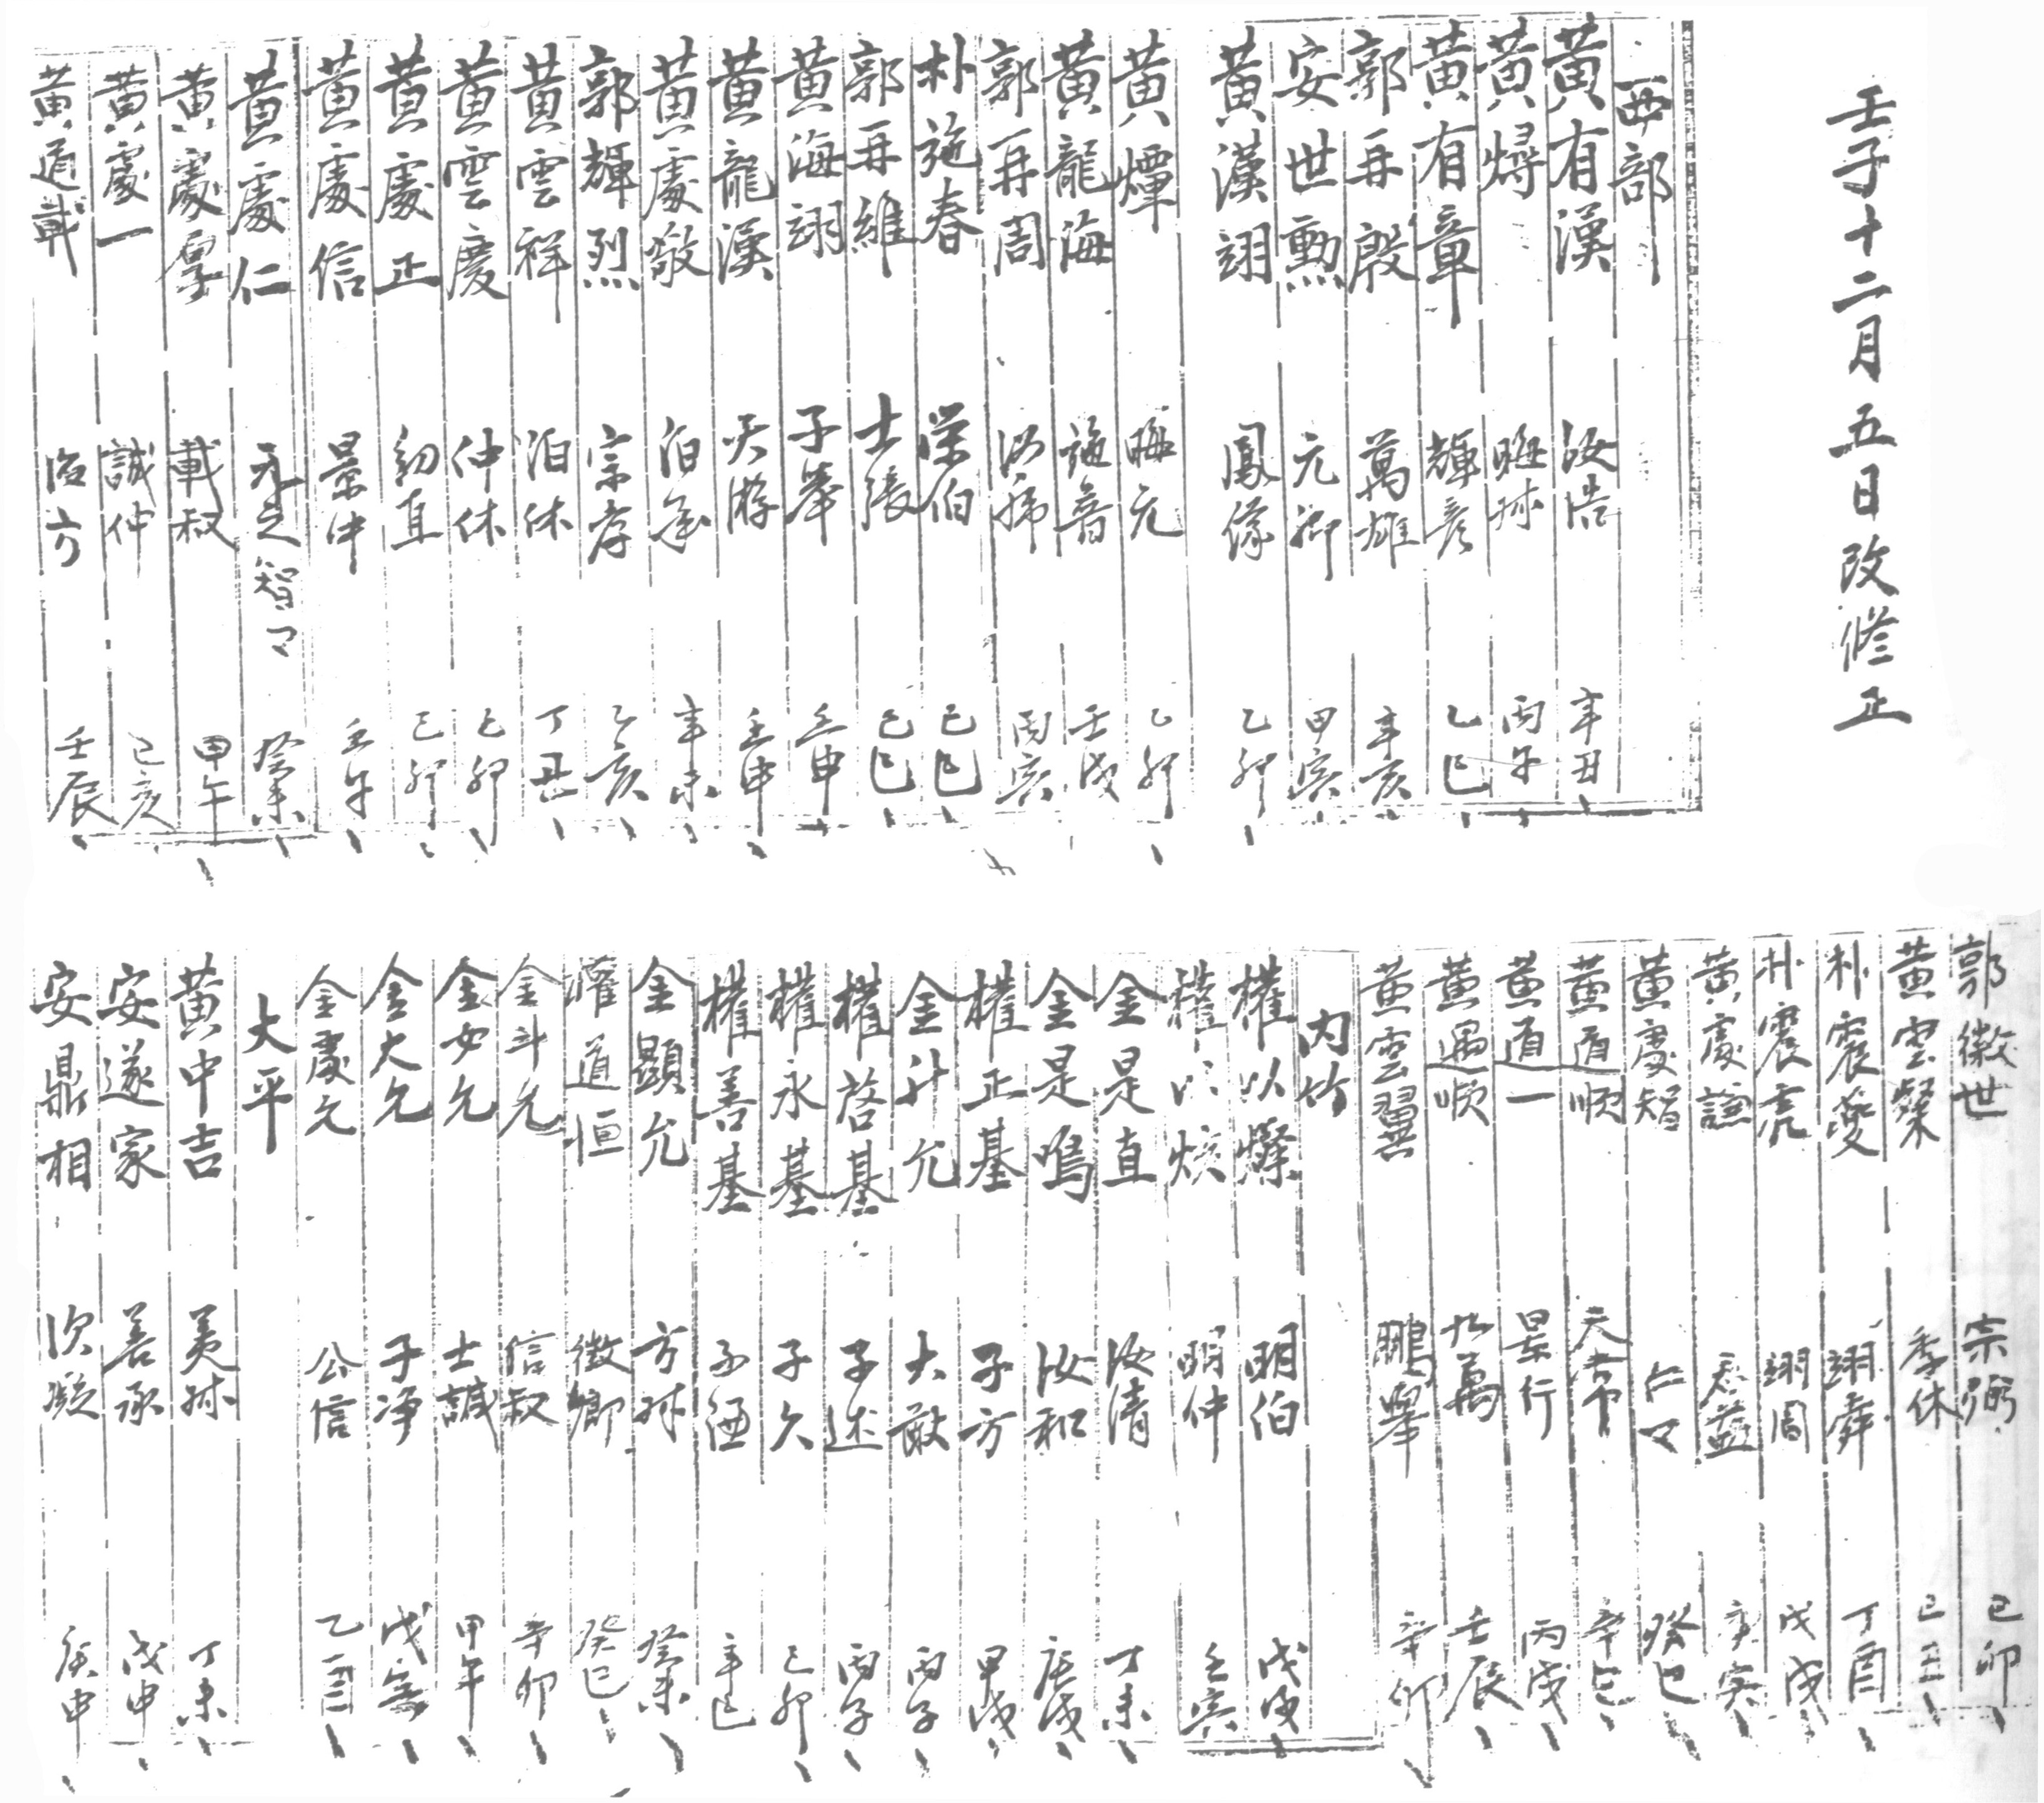 壬子十二月五日改修正
西部
黃有漢 汝浩 辛丑
黃燖 晦 丙午
黃有章 輝彦 乙巳
郭再殷 萬雄 辛亥
安世勲 元卿 甲寅
黃漢翊 鳳 乙卯
黃燀 晦元 乙卯
黃龍海 壬戌
郭再周 丙寅
朴施春 榮伯 己巳
郭再維 士張 己巳
黃海翊 子擧 壬申
黃龍漢 天游 壬申
黃處敬 伯 辛未
郭輝烈 宗 乙亥
黃雲祥 伯休 丁丑
黃雲慶 仲休 己卯
黃處正 直 己卯
黃處信 景中 壬午
黃處仁 元之 智マ 癸未
黃處厚 載叔 甲午
黃處一 誠仲 己亥
黃道載 方 壬辰
郭徵世 宗弼 己卯
黃雲粲 季休 己丑
朴震夔 翊舜 丁酉
朴震亮 翊周 戊戌
黃處謙 益 庚寅
黃處智 仁マ 癸巳
黃道順 天常 辛巳
黃道一 景行 丙戌
黃遇順 九萬 壬辰
黃雲翼 鵬擧 辛卯
內竹
權以燦 明伯 戊戌
權以炫 明仲 壬寅
金是直 汝清 丁未
金是鳴 汝和 庚戌
權正基 子方 甲戌
金升允 大猷 丙子
權啓基 子述 丙子
權永基 子久 己卯
權善基 子 辛巳
金顯允 方 癸未
權道恒 徵卿 癸巳
金斗允 信叔 辛卯
金女允 士誠 甲午
金大允 子净 戊寅
金處允 公信 乙酉
大平
黃中吉 美 丁未
安遂家 善承 戊申
安鼎相 次凝 庚申